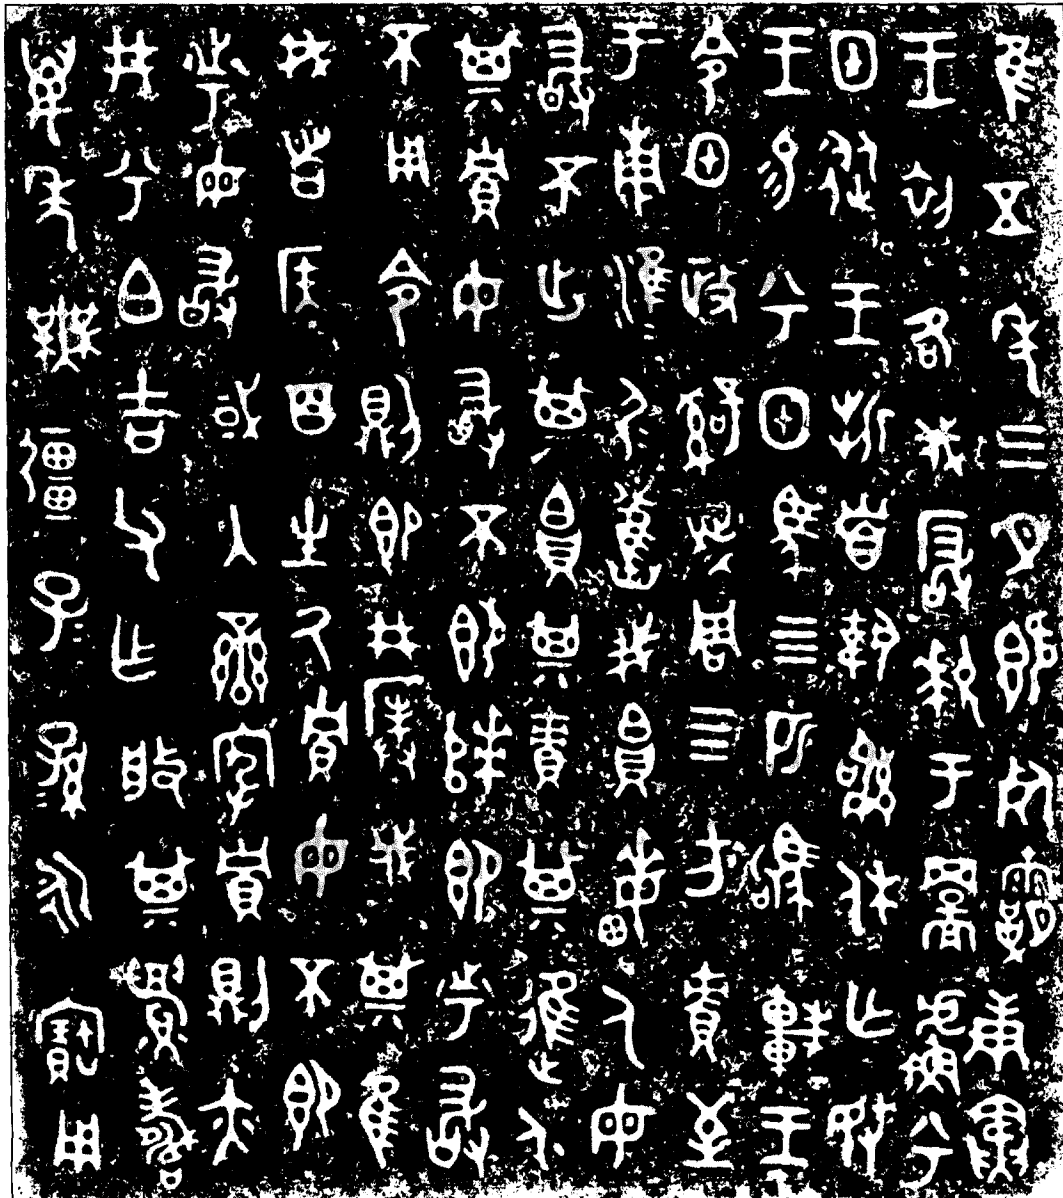 隹五年三月既死霸庚寅
王初各伐玁狁于䚄𧷽兮
甲從王折首執訊休亡敃
王易兮甲馬四匹駒車王
令甲政𤔲成周四方責至
于南淮尸淮尸舊我帛畮人毋
敢不出其帛其責其進人
其賈毋敢不即次即市敢
不用令則即井撲伐其隹
我者侯百生厥賈毋不即
市毋敢或入䜌宄賈則亦
井兮白吉父乍般其眉壽
萬年無疆子子孫孫永寶用